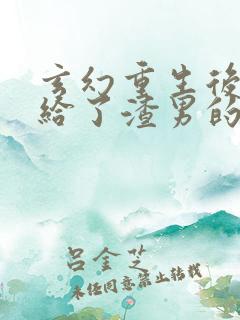 玄幻重生後
給了渣男的
呂金芝
未经同意禁止转载